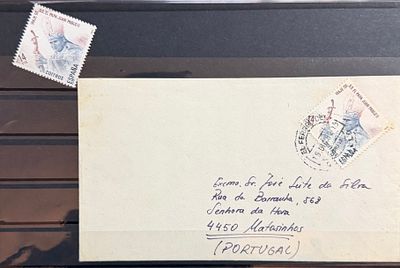 VIAJE DE S.S. EL PAPA JUAN PABLO II
14
CORREOS
ESPAÑA
VIAJE DE S.S. EL PAPA JUAN PABLO II
ESPAÑA
EL FERROL
Exmo. Sr. José Leite da Silva
Rua da Barranha, 568
Senhora da Hora
4450 Matosinhos
(PORTUGAL)